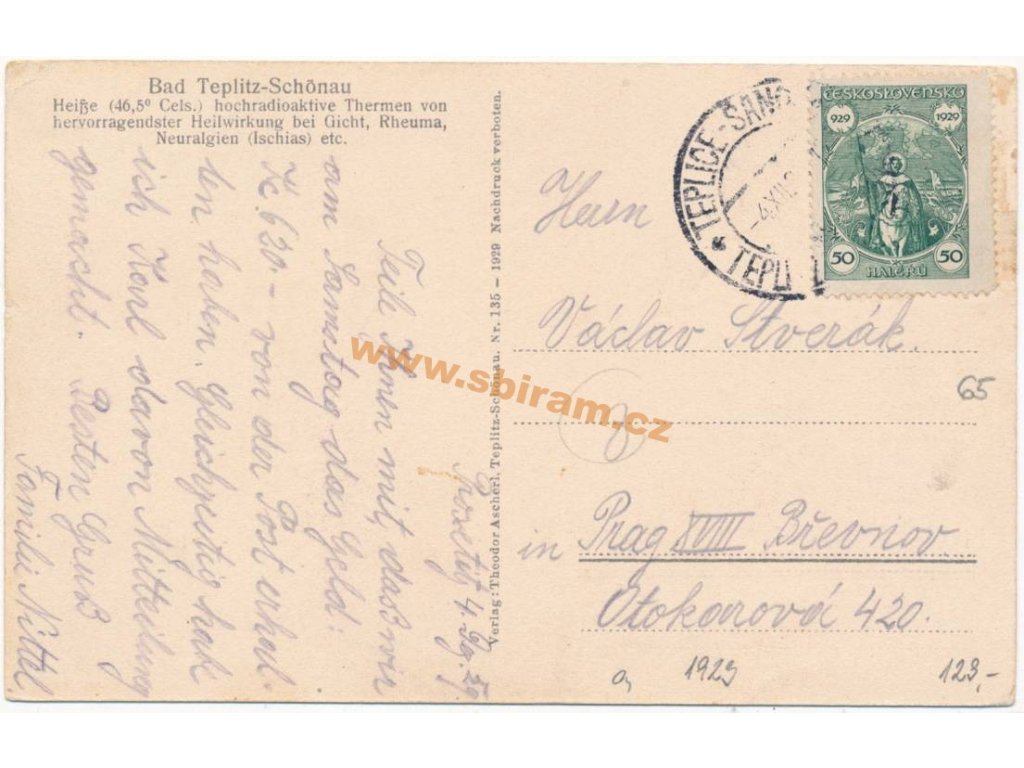 Bad Teplitz-Schönau
Heiße (46,5° Cels.) hochradioaktive Thermen von
hervorragendster Heilwirkung bei Gicht, Rheuma,
Neuralgien (Ischias) etc.
4. 29.
Teile Ihnen mit, das wir
am Samstag das Geld:
K. 630 - von der Post erhal-
ten haben. Gleichzeitig hab
ich Karl davon Mitteilung
gemacht. Besten Gruß
Familie Nittel
Verlag: Theodor Ascherl, Teplitz-Schönau. Nr. 135 — 1929 Nachdruck verboten.
TEPLICE-ŠANO
4 XII
TEPLI
ČESKOSLOVENSKO
929 1929
50 50
HALÉŘŮ
Herrn
Václav Stverák.
65
8
in Prag XVIII Břevnov.
Otokarová 420.
1929
123,-
www.sbiram.cz